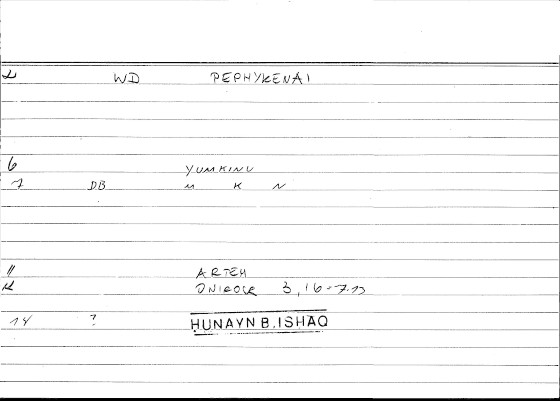 2 WD PEPHYKENAI
6 YUMKINU
7 DB M K N
11 ARTEM
12 ONIROCR 3,16-7.13
14 ? ḤUNAYN B.ISHAQ